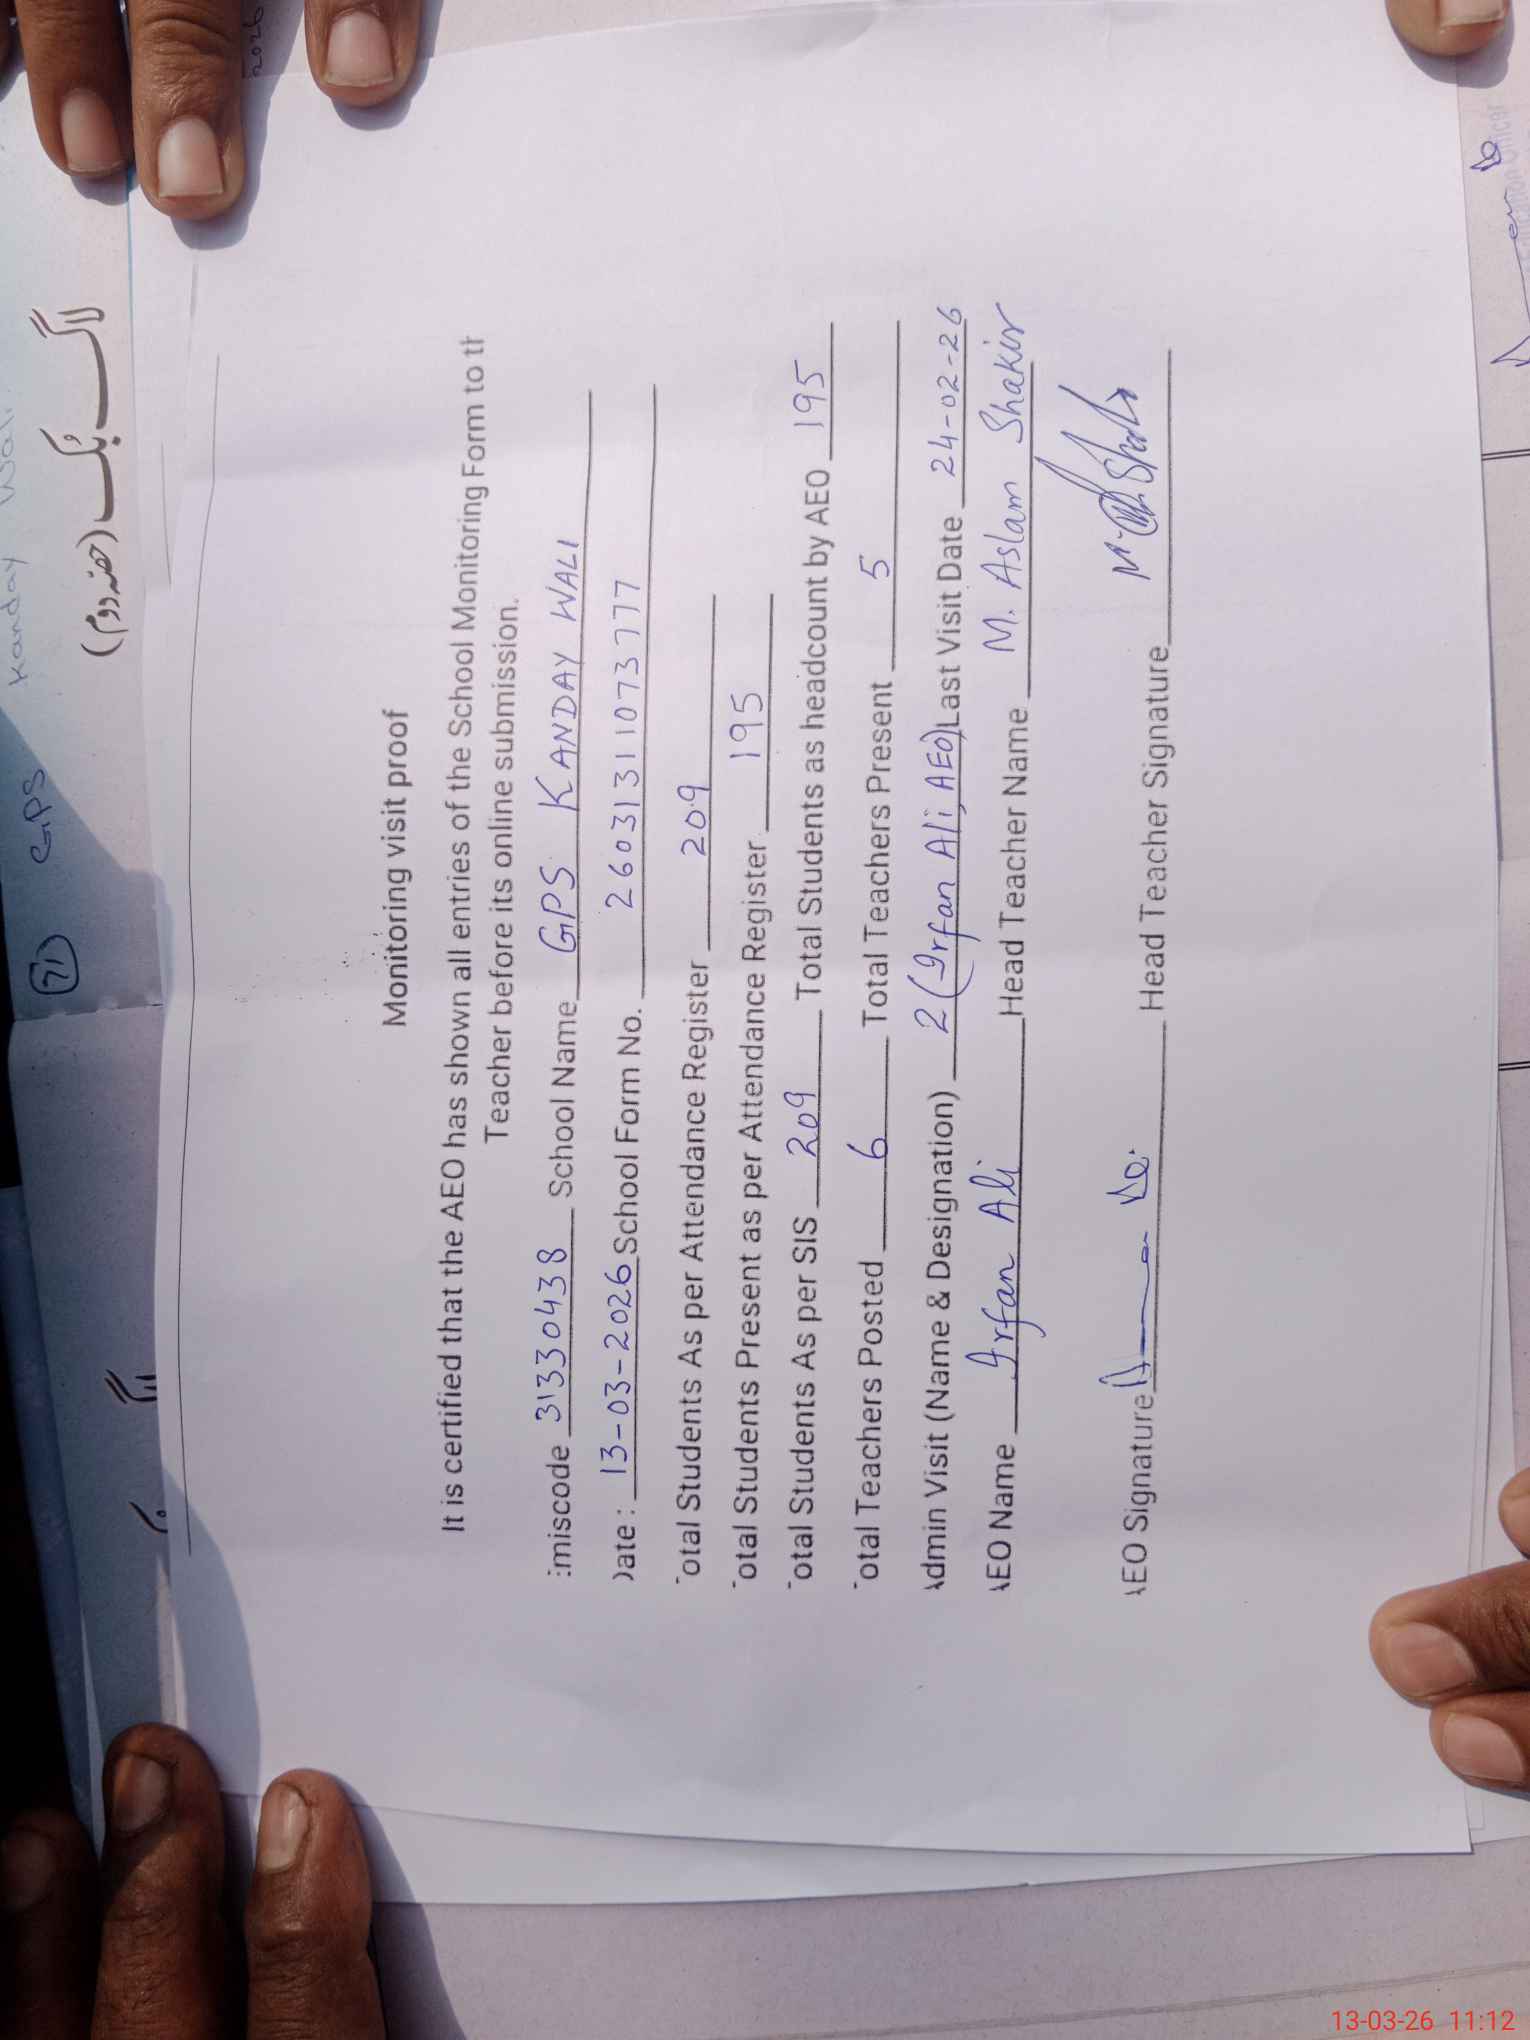 Kanday Wali
71 GPS
لاگ بُک (حصہ دوم)
2026
Monitoring visit proof
It is certified that the AEO has shown all entries of the School Monitoring Form to th
Teacher before its online submission.
Emiscode 31330438 School Name GPS KANDAY WALI
Date : 13-03-2026 School Form No. 26031311073777
Total Students As per Attendance Register 209
Total Students Present as per Attendance Register 195
Total Students As per SIS 209 Total Students as headcount by AEO 195
Total Teachers Posted 6 Total Teachers Present 5
Admin Visit (Name & Designation) 2 (Irfan Ali, AEO) Last Visit Date 24-02-26
AEO Name Irfan Ali Head Teacher Name M. Aslam Shakir
AEO Signature Head Teacher Signature
13-03-26 11:12